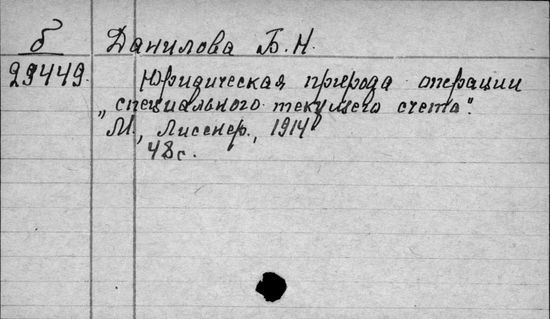 б Данилова Б. Н.
29449. Юридическая природа операции
„специального текущего счета".
М., Лисснер., 1914
48 с.